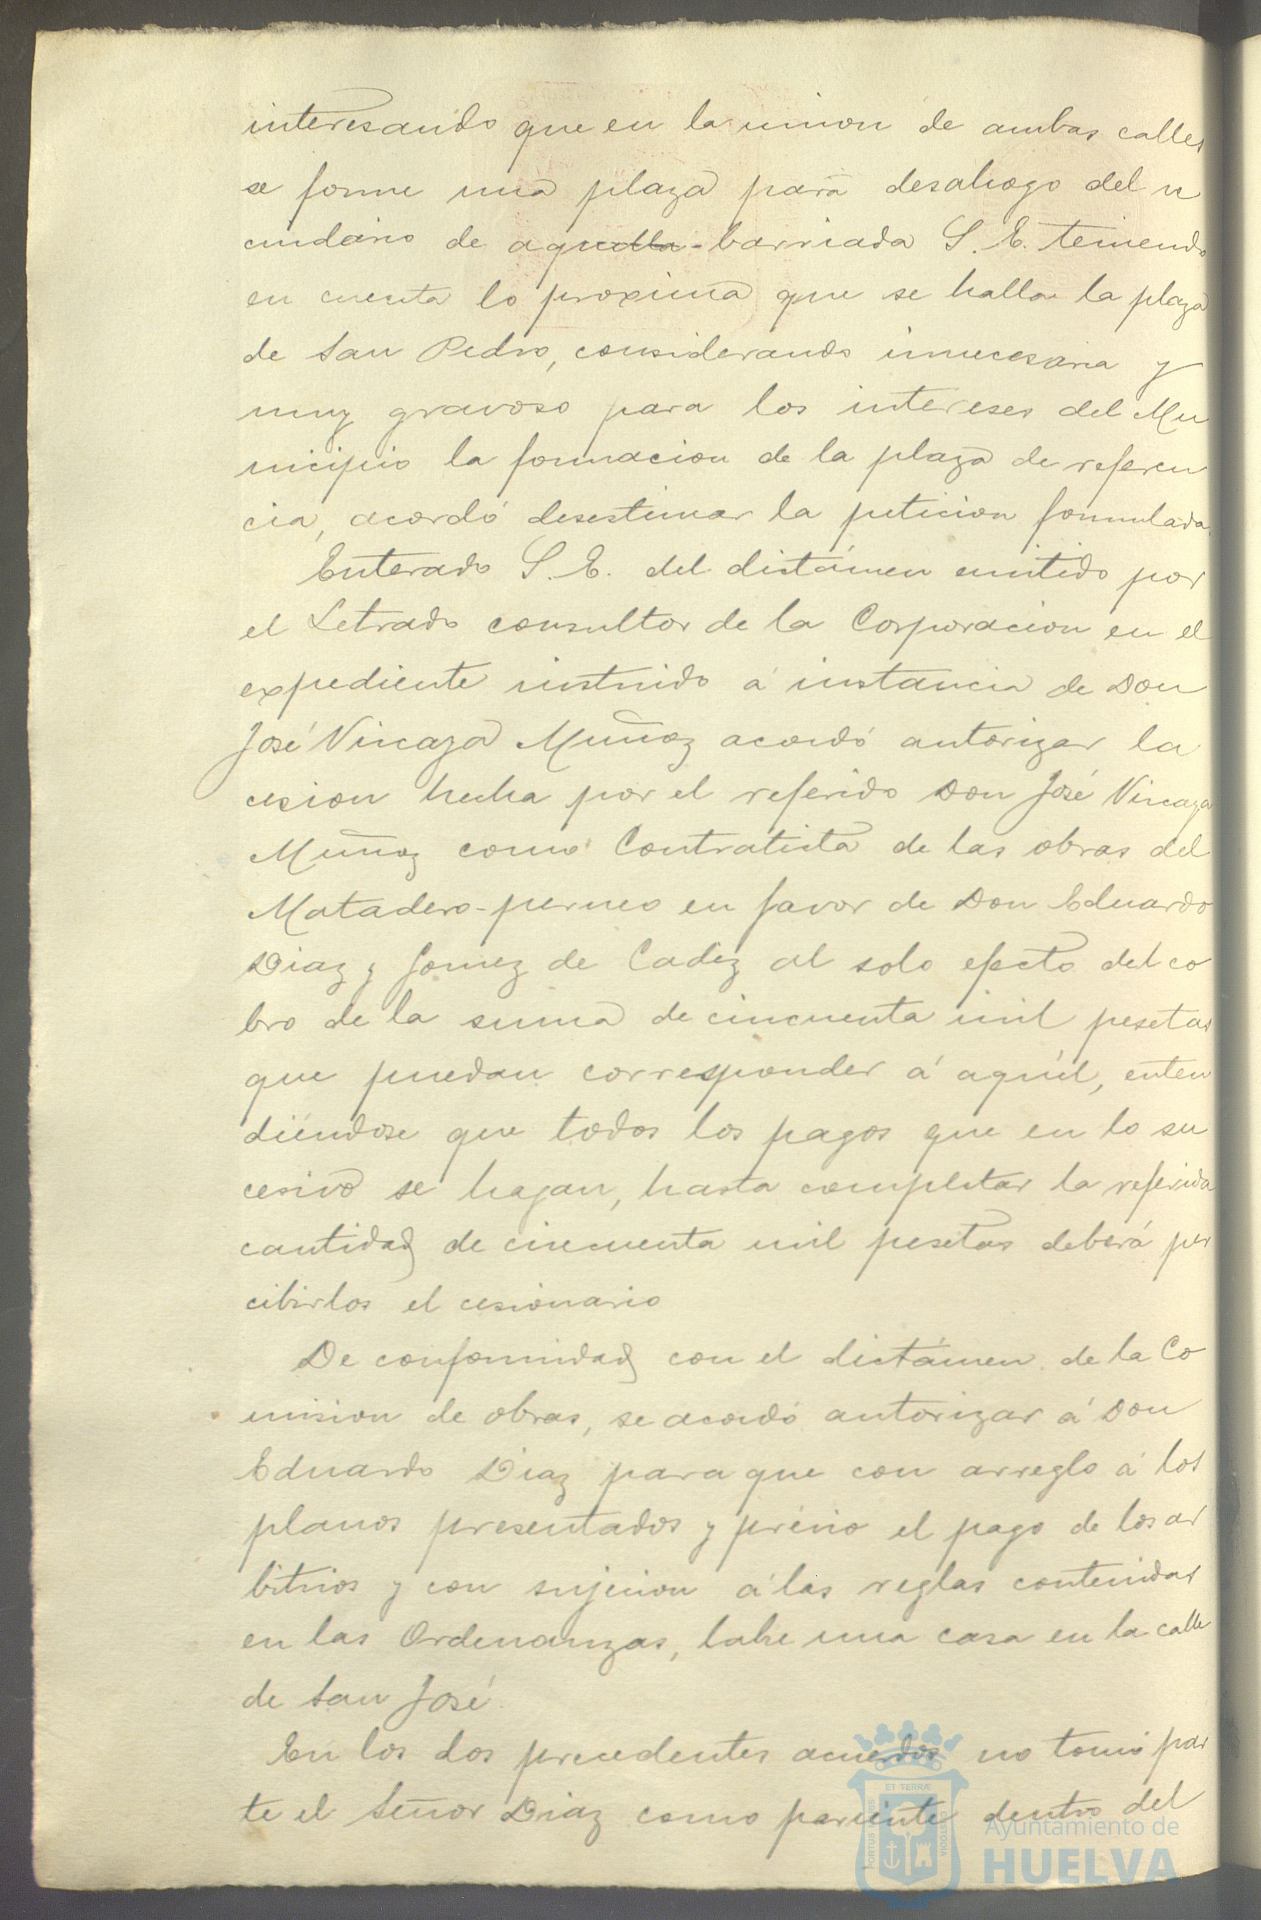 interesando que en la union de ambas calles
se forme una plaza para desahogo del ve
cindario de aquella barriada S. E. teniendo
en cuenta lo proxima que se halla la plaza
de San Pedro, considerando innecesaria y
muy gravoso para los intereses del Mu
nicipio la formacion de la plaza de referen
cia, acordó desestimar la peticion formulada.
Enterado S. E. del dictámen emitido por
el Letrado consultor de la Corporacion en el
expediente instruido á instancia de Don
José Vincaza Muñoz acordó autorizar la
cesion hecha por el referido Don José Vincaza
Muñoz como Contratista de las obras del
Matadero-perneo en favor de Don Eduardo
Diaz y Gomez de Cadiz al solo efecto del co
bro de la suma de cincuenta mil pesetas
que puedan corresponder á aquél, enten
diéndose que todos los pagos que en lo su
cesivo se hagan, hasta completar la referida
cantidad de cincuenta mil pesetas deberá per
cibirlos el cesionario
De conformidad con el dictámen de la Co
mision de obras, se acordó autorizar á Don
Eduardo Diaz para que con arreglo á los
planos presentados y prévio el pago de los ar
bitrios y con sujecion á las reglas contenidas
en las Ordenanzas, labre una casa en la calle
de San José.
En los dos precedentes acuerdos no tomó par
te el Señor Diaz como pariente dentro del
ET TERRÆ
PORTUS
CUSTODIA
Ayuntamiento de
HUELVA